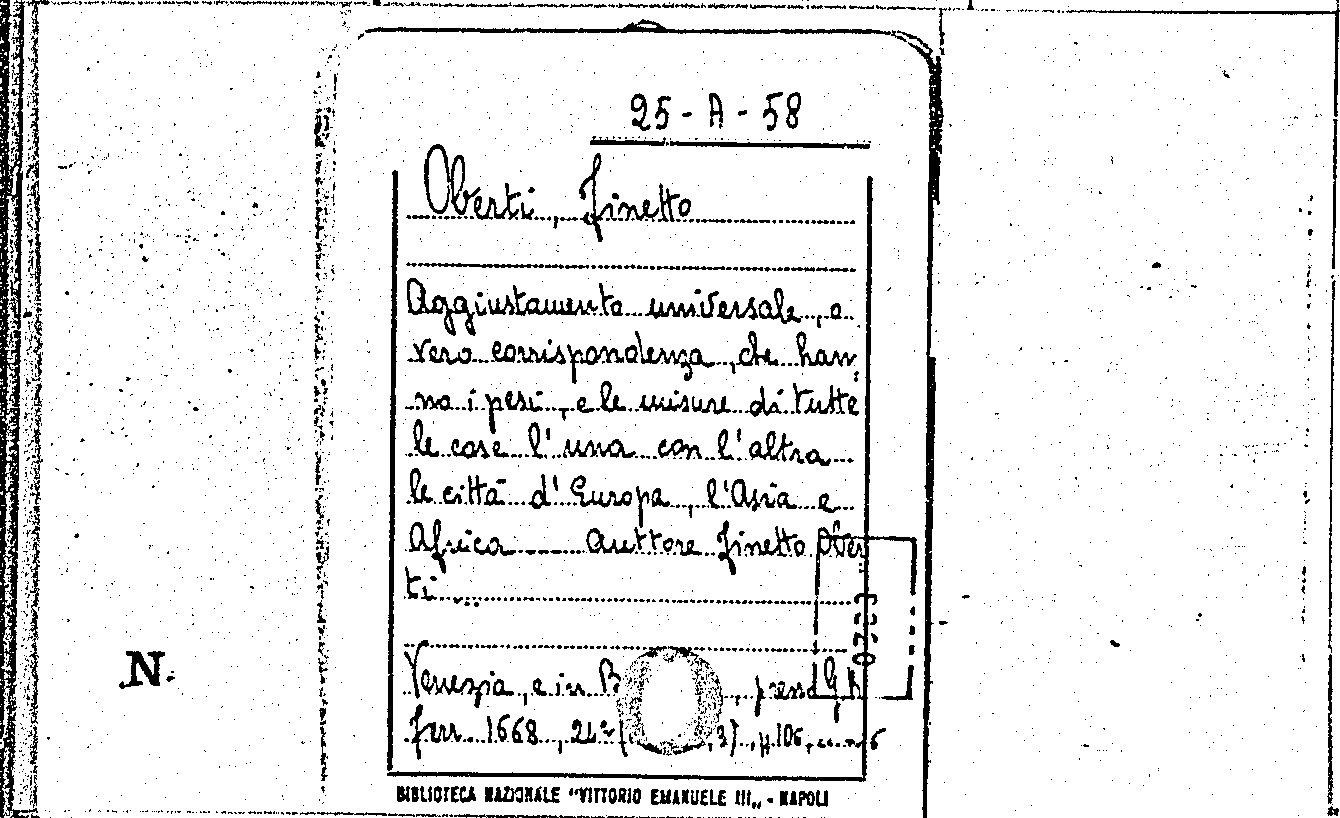 25-A-58
Oberti, Finetto
Aggiustamento universale, o
vero corrispondenza, che han,
no i pesi, e le misure di tutte
le cose l'una con l'altra
le città d'Europa, l'Asia e
Africa ---- Auttore Finetto Ober
ti ...
N.
Venezia, e in B , presso G. B.
Ferr. 1668, 24° ( , 3), p. 106,
BIBLIOTECA NAZIONALE "VITTORIO EMANUELE III„ - NAPOLI